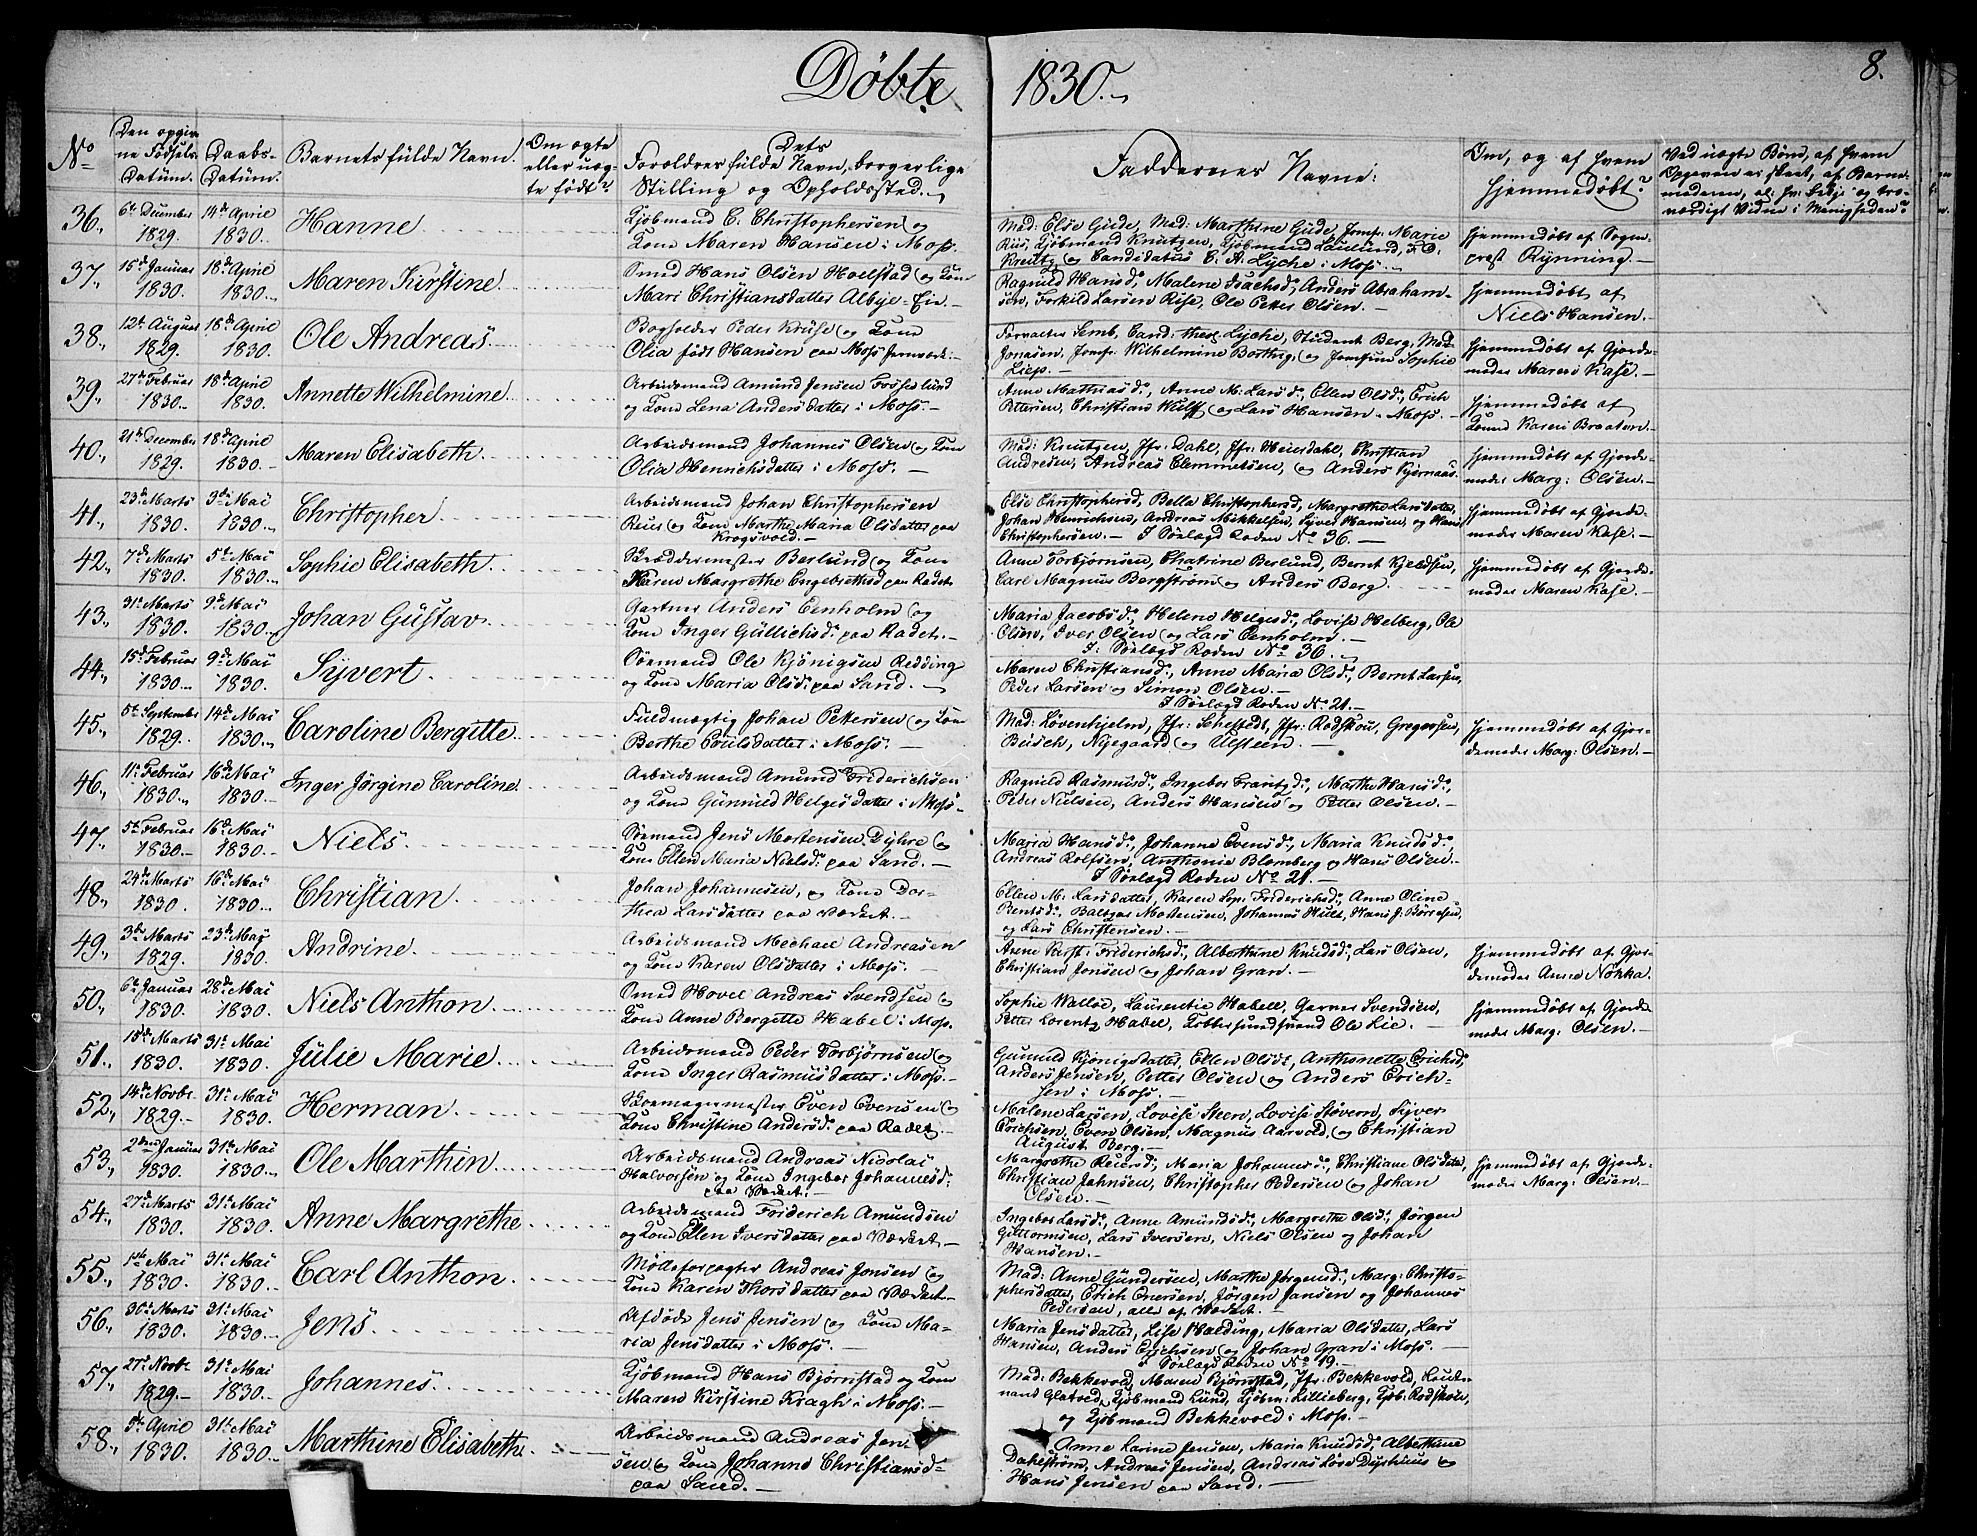 Døbte 1830.
8.
No
Den opgivne Fødsels-Datum.
Daabs-Datum.
Barnets fulde Navn.
Om ægte eller uægte født?
Dets Forældres fulde Navn, borgerlige Stilling og Opholdssted.
Faddernes Navne:
Om, og af hvem hjemmedøbt?
36., 6te December 1829. 14de April 1830. Hanne
Kjøbmand C. Christophersen og
Kone Maren Hansen i Moss.
Mad: Else Gude, Mad: Marthine Gude, Jomf: Marie
Riis, Kjøbmand Kreutzen, Kjøbmand Laulund, F. D.
Kreutz og Candidatus C. A. Lyche i Moss.
hjemmedøbt af Sogne-
præst Rynning.
37., 15de Januar 1830. 18de April 1830. Maren Kirstine
Smed Hans Olsen Hoelstad og Kone
Mari Christiansdatter Albye-Eie.
Ragnild Hansd:, Malene Isachsd:, Anders Abraham-
sen, Torkild Larsen Riise, Ole Petter Olsen.
hjemmedøbt af
Niels Hansen.
38., 12te August 1829. 18de April 1830. Ole Andreas
Bogholder Peder Kruse og Kone
Olia født Hansen paa Moss Jernverk.
Forvalter Lemb, Cand: theol Lyche, Student Berg, Mad
Jonasen, Jomfr: Wilhelmine Borthig, og Jomfrue Sophie
Liep.
hjemmedøbt af Gjorde-
moder Maren Kase.
39., 27de Februar 1830. 18de April 1830. Annette Wilhelmine
Arbeidsmand Amund Jensen Fosserlund
og Kone Lena Andersdatter i Moss.
Anne Mathiasd:, Anne M: Larsd:, Ellen Olsd:, Erich
Pettersen, Christian Wulff og Lars Hansen i Moss.
hjemmedøbt af
Kone Karen Braaten.
40., 21de December 1829. 18de April 1830. Maren Elisabeth
Arbeidsmand Johannes Olsen og Kone
Olia Henrichsdatter i Moss.
Mad: Kreutzen, Jfr: Dahl, Jfr: Heierdahl, Christian
Andresen, Andreas Clemmetsen, og Anders Bjørnaas.
hjemmedøbt af Gjorde-
moder Marg: Olsen.
41., 23de Marts 1830. 3de Mai 1830. Christopher
Arbeidsmand Johan Christophersen
Riis og Kone Marthe Maria Olsdatter paa
Krogsvold.
Else Christophersd, Belle Christophersd, Margrethe Larsdatter,
Johan Henrichsen, Andreas Mikkelsen, Syver Hansen, og Hans
Christophersen. I Sølægd Roden No 36.
hjemmedøbt af Gjorde-
moder Maren Kase.
42., 7de Marts 1830. 5te Mai 1830. Sophie Elisabeth
Skræddermester Berlund og Kone
Karen Margrethe Engebrethsd paa Radet.
Anne Torbjørnsen, Chatrine Berlund, Bernt Kjeldsen,
Carl Magnus Bergstrøm og Anders Berg.
hjemmedøbt af Gjorde-
moder Maren Kase.
43., 31te Marts 1830. 9de Mai 1830. Johan Gustav
Gartner Anders Eenholm og
Kone Inger Gullichsd: paa Radet.
Maria Jacobsd:, Helene Helgesd:, Lovise Helberg, Ole
Olsen, Iver Olsen og Lars Eenholm.
I: Sølægd Roden No 36.
44., 15de Februar 1830. 9de Mai 1830. Syvert
Sømand Ole Kjønigsen Redding
og Kone Maria Olsd: paa Sand.
Maren Christiansd:, Anne Maria Olsd:, Bernt Larsen,
Peder Larsen og Simon Olsen.
I Sølægd Roden No 21.
45., 5te September 1829. 14de Mai 1830. Caroline Bergitte
Fuldmægtig Johan Pettersen og Kone
Berthe Poulsdatter i Moss.
Mad: Løvenhjelm, Jfr: Sehestedt, Jfr: Rodskou, Gregersen,
Beisch, Nyegaard og Ulsteen.
hjemmedøbt af Gjor-
demoder Marg: Olsen.
46., 11te Februar 1830. 16de Mai 1830. Inger Jørgine Caroline
Arbeidsmand Amund Friderichsen
og Kone Gunnild Helgesdatter i Moss.
Ragnild Rasmusd:, Ingebor Frantzd:, Marthe Hansd:,
Peder Nielsen, Anders Hansen og Petter Olsen.
47., 5te Februar 1830. 16de Mai 1830. Niels
Sømand Jens Mortensen Dyhre og
Kone Ellen Maria Nielsd: paa Sand.
Maria Hansd:, Johanne Evensd:, Maria Knudsd:,
Andreas Rolfsen, Anthonie Blomberg og Hans Olsen.
I Sølægd Roden No 21.
48., 24de Marts 1830. 16de Mai 1830. Christian
Johan Johannesen, og Kone Dor-
thea Larsdatter paa Værket.
Ellen M: Larsdatter, Karen Sop: Friderichsd:, Anne Oline
Berntsd:, Baltzer Mortensen, Johannes Hult, Hans J: Børresen,
og Lars Christensen.
49., 3die Marts 1829. 23de May 1830. Andrine
Arbeidsmand Michael Andreasen
og Kone Karen Olsdatter i Moss.
Anne Kirst: Friderichsd:, Alberthine Knudsd:, Lars Olsen,
Christian Jonsen og Johan Gran.
hjemmedøbt af Gjor-
demoder Anne Nokka.
50., 6te Januar 1830. 28de Mai 1830. Niels Anthon
Smed Hovel Andreas Svendsen og
Kone Anne Bergette Habel i Moss.
Sophie Walloe, Laurentie Habell, Garver Svendsen,
Petter Lorentz Habel, Kobbersmedsvend Ole Lie.
hjemmedøbt af Gjorde-
moder Marg: Olsen.
51., 15de Marts 1830. 31te Mai 1830. Julie Marie
Arbeidsmand Peder Torbjørnsen og
Kone Inger Rasmusdatter i Moss.
Gunnild Kjønigsdatter, Ellen Olsdt, Anthonette Erichsd:,
Anders Jensen, Petter Olsen og Anders Erich-
sen i Moss.
52., 14de Novbr. 1829. 31te Mai 1830. Herman
Skomagermester Even Evensen og
Kone Christine Andersd: paa Radet.
Malene Larsen, Lovise Steen, Lovise Støvern, Syver
Erichsen, Even Olsen, Magnus Aarvold, og Christian
August Berg.
53., 2den Januar 1830. 31te Mai 1830. Ole Marthin
Arbeidsmand Andreas Nicolai
Halvorsen og Kone Ingebor Johannesd:
paa Værket.
Margrethe Reiersd:, Maria Johannesd:, Christiane Olsdatter,
Christian Johnsen, Christopher Pedersen og Johan
Olsen.
hjemmedøbt af Gjorde-
moder Marg: Olsen.
54., 27de Marts 1830. 31te Mai 1830. Anne Margrethe
Arbeidsmand Friderich Amundsen
og Kone Ellen Iversdatter paa Værket.
Ingebor Larsd:, Anne Amundsd:, Margrethe Olsd:, Jørgen
Guttormsen, Lars Iversen, Niels Olsen og Johan
Hansen.
55., 1ste Mai 1830. 31te Mai 1830. Carl Anthon
Mølleforpagter Andreas Jonsen og
Kone Karen Thorsdatter paa Værket.
Mad: Anne Gundersen, Marthe Jørgensd:, Marg: Christo-
phersdatter, Erich Enersen, Jørgen Jansen og Johannes
Pedersen, alle af Værket.
56., 30te Marts 1830. 31te Mai 1830. Jens
Afdøde Jens Jensen og Kone Ma-
ria Jensdatter i Moss.
Maria Jensdatter, Lise Halding, Maria Olsdatter, Lars
Hansen, Anders Erichsen og Johan Gran i Moss.
I Sølægd Roden No 19.
57., 27de Novbr. 1829. 31te Mai 1830. Johannes
Kjøbmand Hans Bjørnstad og Kone
Maren Kirstine Kragh i Moss.
Mad: Bekkevold, Maren Bjørnstad, Jfr: Bekkevold, Lieute-
nant Glatved, Kjøbmand Lund, Kjøbm: Lillieberg, Kjøb: Rodskou,
og Kjøbmand Bekkevold i Moss.
58., 5te April 1830. 31te Mai 1830. Marthine Elisabeth
Arbeidsmand Andreas Jen-
sen og Kone Johanne Christiansd
paa Sand.
Anne Larine Jensen, Maria Knudsd:, Alberthine
Dahlstrøm, Andreas Jensen, Andreas Lose Dyphuus og
Hans Jensen paa Sand.